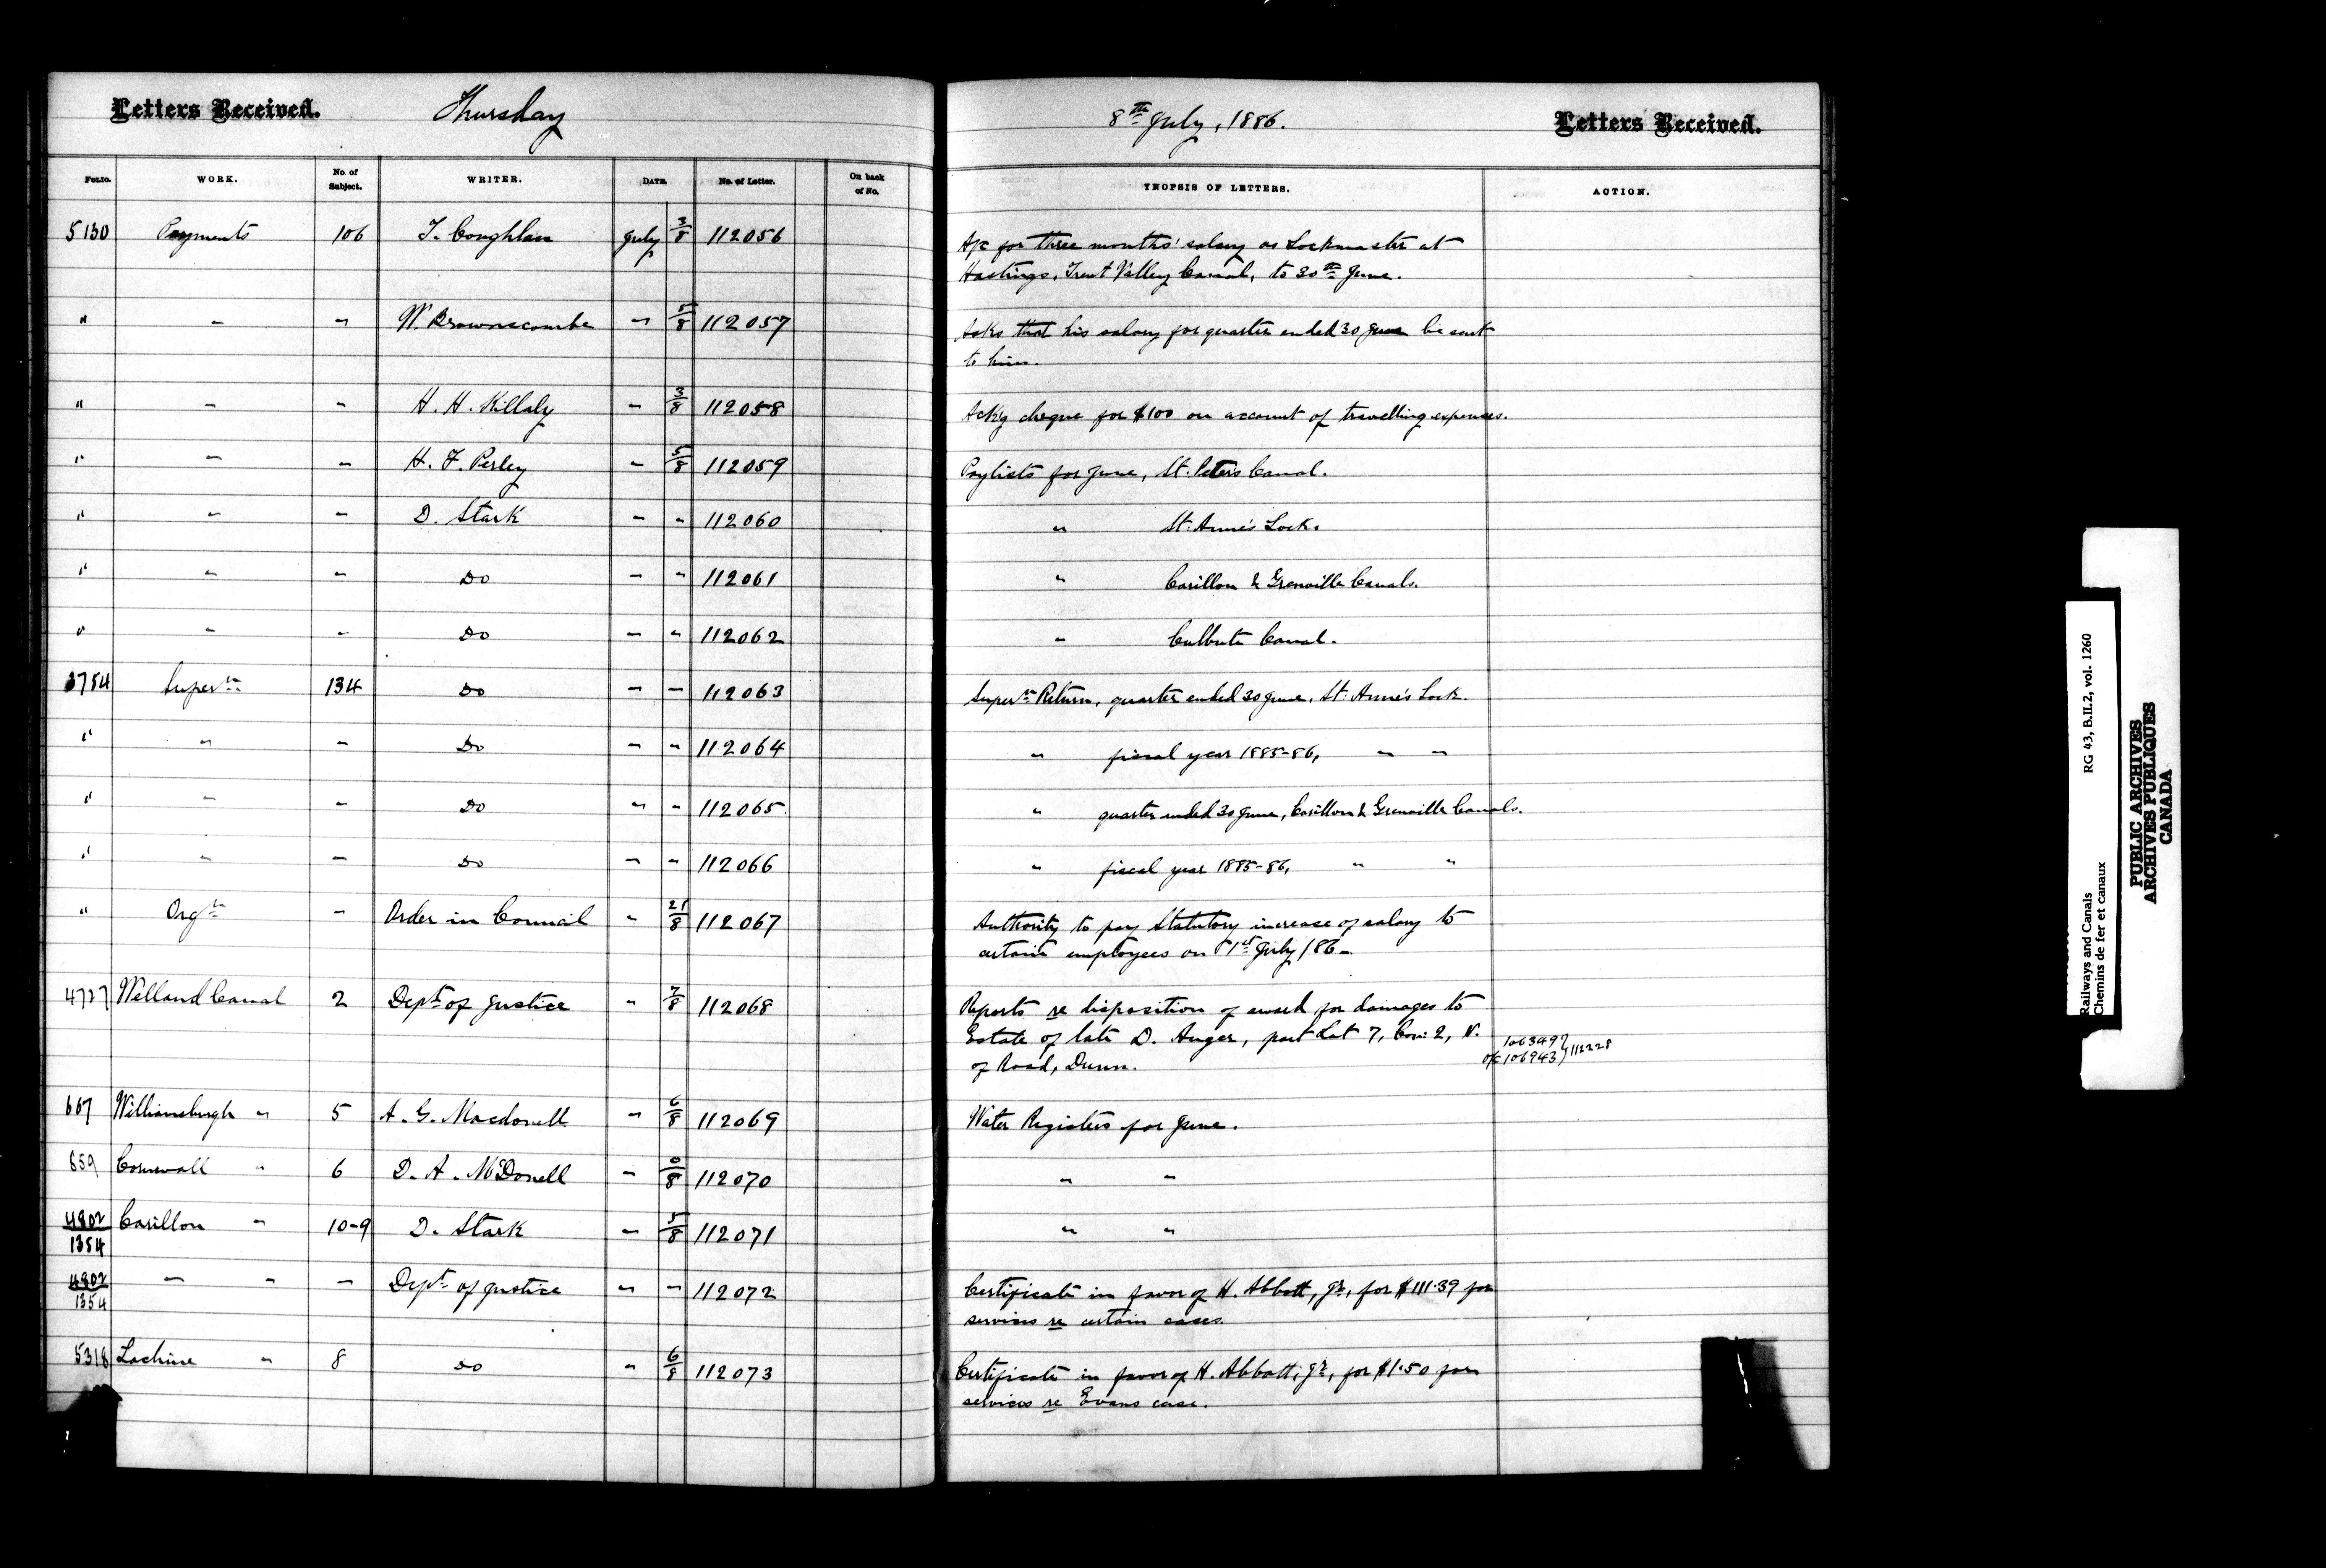 Letters Received. Thursday 8th July, 1886. Letters Received.
FOLIO. WORK. No. of Subject. WRITER. DATE. No. of Letter. On back of No. SYNOPSIS OF LETTERS. ACTION.
5130 Payments 106 T. Coughlan July 3/8 112056 A/c for three months' salary as Lockmaster at
Hastings, Trent Valley Canal, to 30th June.
" " " W. Brownscombe " 5/8 112057 Asks that his salary for quarter ended 30 June be sent
to him.
" " " H. H. Killaly " 3/8 112058 Ack'g cheque for $100 on account of travelling expenses.
" " " H. F. Perley " 5/8 112059 Paylists for June, St. Peter's Canal.
" " " D. Stark " " 112060 " St. Anne's Lock.
" " " Do " " 112061 " Carillon & Grenville Canals.
" " " Do " " 112062 " Culbute Canal.
3754 Superⁿ 134 Do " " 112063 Superⁿ Return, quarter ended 30 June, St. Anne's Lock.
" " " Do " " 112064 " fiscal year 1885-86, " "
" " " Do " " 112065 " quarter ended 30 June, Carillon & Grenville Canals.
" " " Do " " 112066 " fiscal year 1885-86, " "
" Orgⁿ " Order in Council " 21/8 112067 Authority to pay Statutory increase of salary to
certain employees on 1st July /86-
4727 Welland Canal 2 Dept of Justice " 7/8 112068 Reports re disposition of award for damages to
Estate of late D. Auger, part Lot 7, Con: 2, N. 106349
of Road, Dunn. o/c 106943 } 112228
667 Williamsburgh " 5 A. G. Macdonell " 6/8 112069 Water Registers for June.
659 Cornwall " 6 D. A. McDonell " 112070 " "
4802/1354 Carillon " 10-9 D. Stark " 5/8 112071 " "
4802/1354 " " " Dept of Justice " " 112072 Certificate in favor of H. Abbott, Jr, for $111.39 for
services re certain cases.
5318 Lachine " 8 Do " 6/8 112073 Certificate in favor of H. Abbott, Jr, for $1.50 for
services re Evans case.
Railways and Canals RG 43, B.II.2, vol. 1260
Chemins de fer et canaux
PUBLIC ARCHIVES
ARCHIVES PUBLIQUES
CANADA